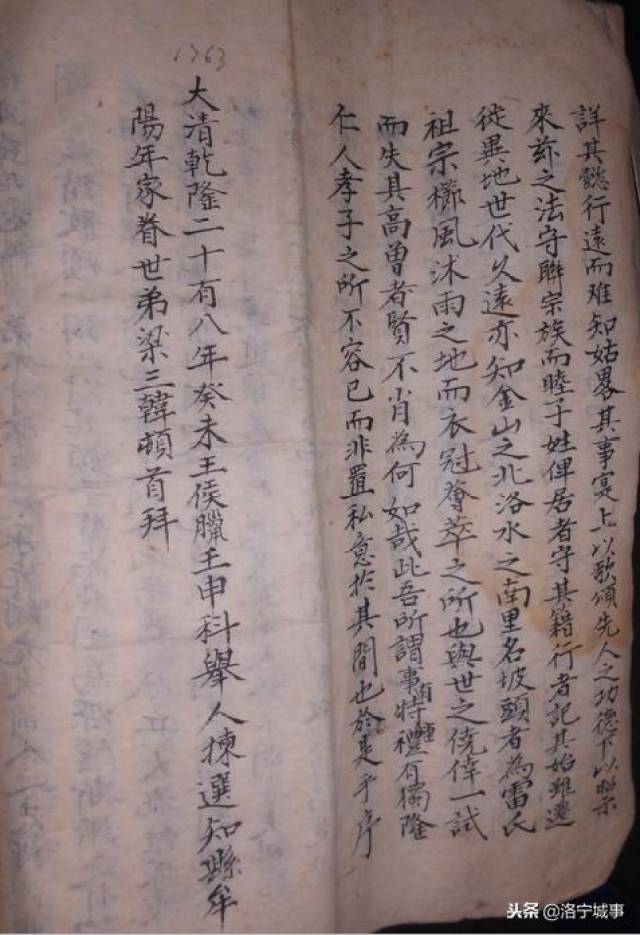 詳其懿行遠而难知姑畧其事寔上以歌頌先人之功德下以昭示
來茲之法守聮宗族而睦子姓俾居者守其籍行者記其始雖遷
徙異地世代久遠亦知金山之北洛水之南里名坡頭者為雷氏
祖宗櫛風沐雨之地而衣冠薈萃之所也與世之侥倖一試
而失其高曾者賢不肖為何如哉此吾所謂事有特重禮有獨隆
仁人孝子之所不容已而非置私意扵其間也扵是乎序
1763
大清乾隆二十有八年癸未王侯臘壬申科舉人揀選知縣年
陽年家眷世弟梁三韓頓首拜
头条 @洛宁城事